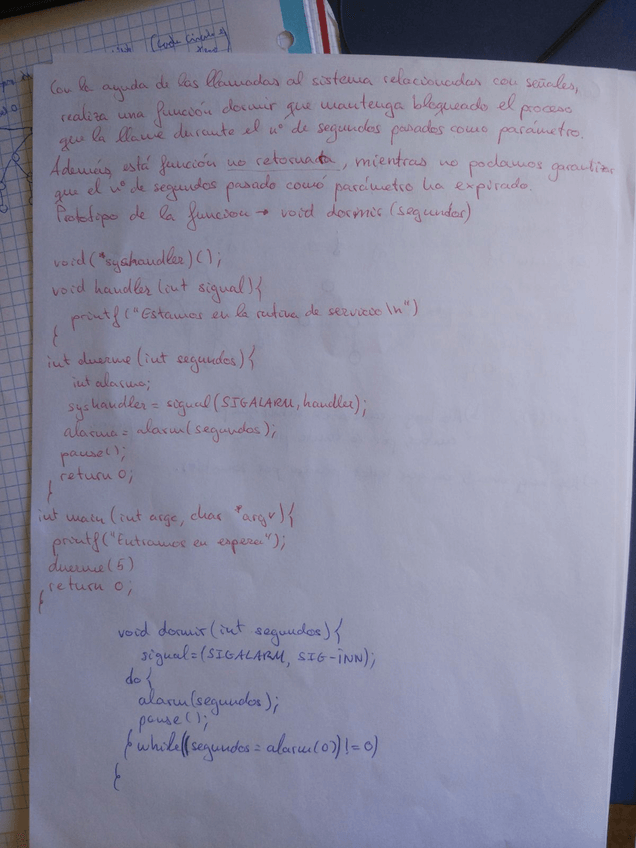 Con la ayuda de las llamadas al sistema relacionadas con señales,
realiza una función dormir que mantenga bloqueado el proceso
que la llame durante el nº de segundos pasados como parámetro.
Además está función no retornata, mientras no podamos garantizar
que el nº de segundos pasado como parámetro ha expirado.
Prototipo de la funcion → void dormir (segundos)
void(*syshandler)();
void handler (int signal){
printf("Estamos en la rutina de servicio \n")
}
int duerme (int segundos){
int alarma;
syshandler = signal(SIGALARM, handler);
alarma = alarm(segundos);
pause();
return 0;
}
int main (int argc, char *argv){
printf("Entramos en espera");
duerme(5)
return 0;
}
void dormir (int segundos){
signal=(SIGALARM, SIG-INN);
do{
alarm(segundos);
pause();
}while((segundos = alarm(0)) != 0)
}